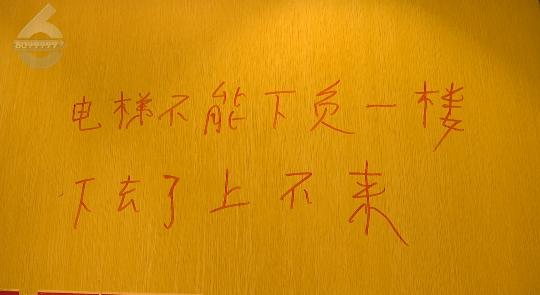 60999999
电梯不能下负一楼
下去了上不来